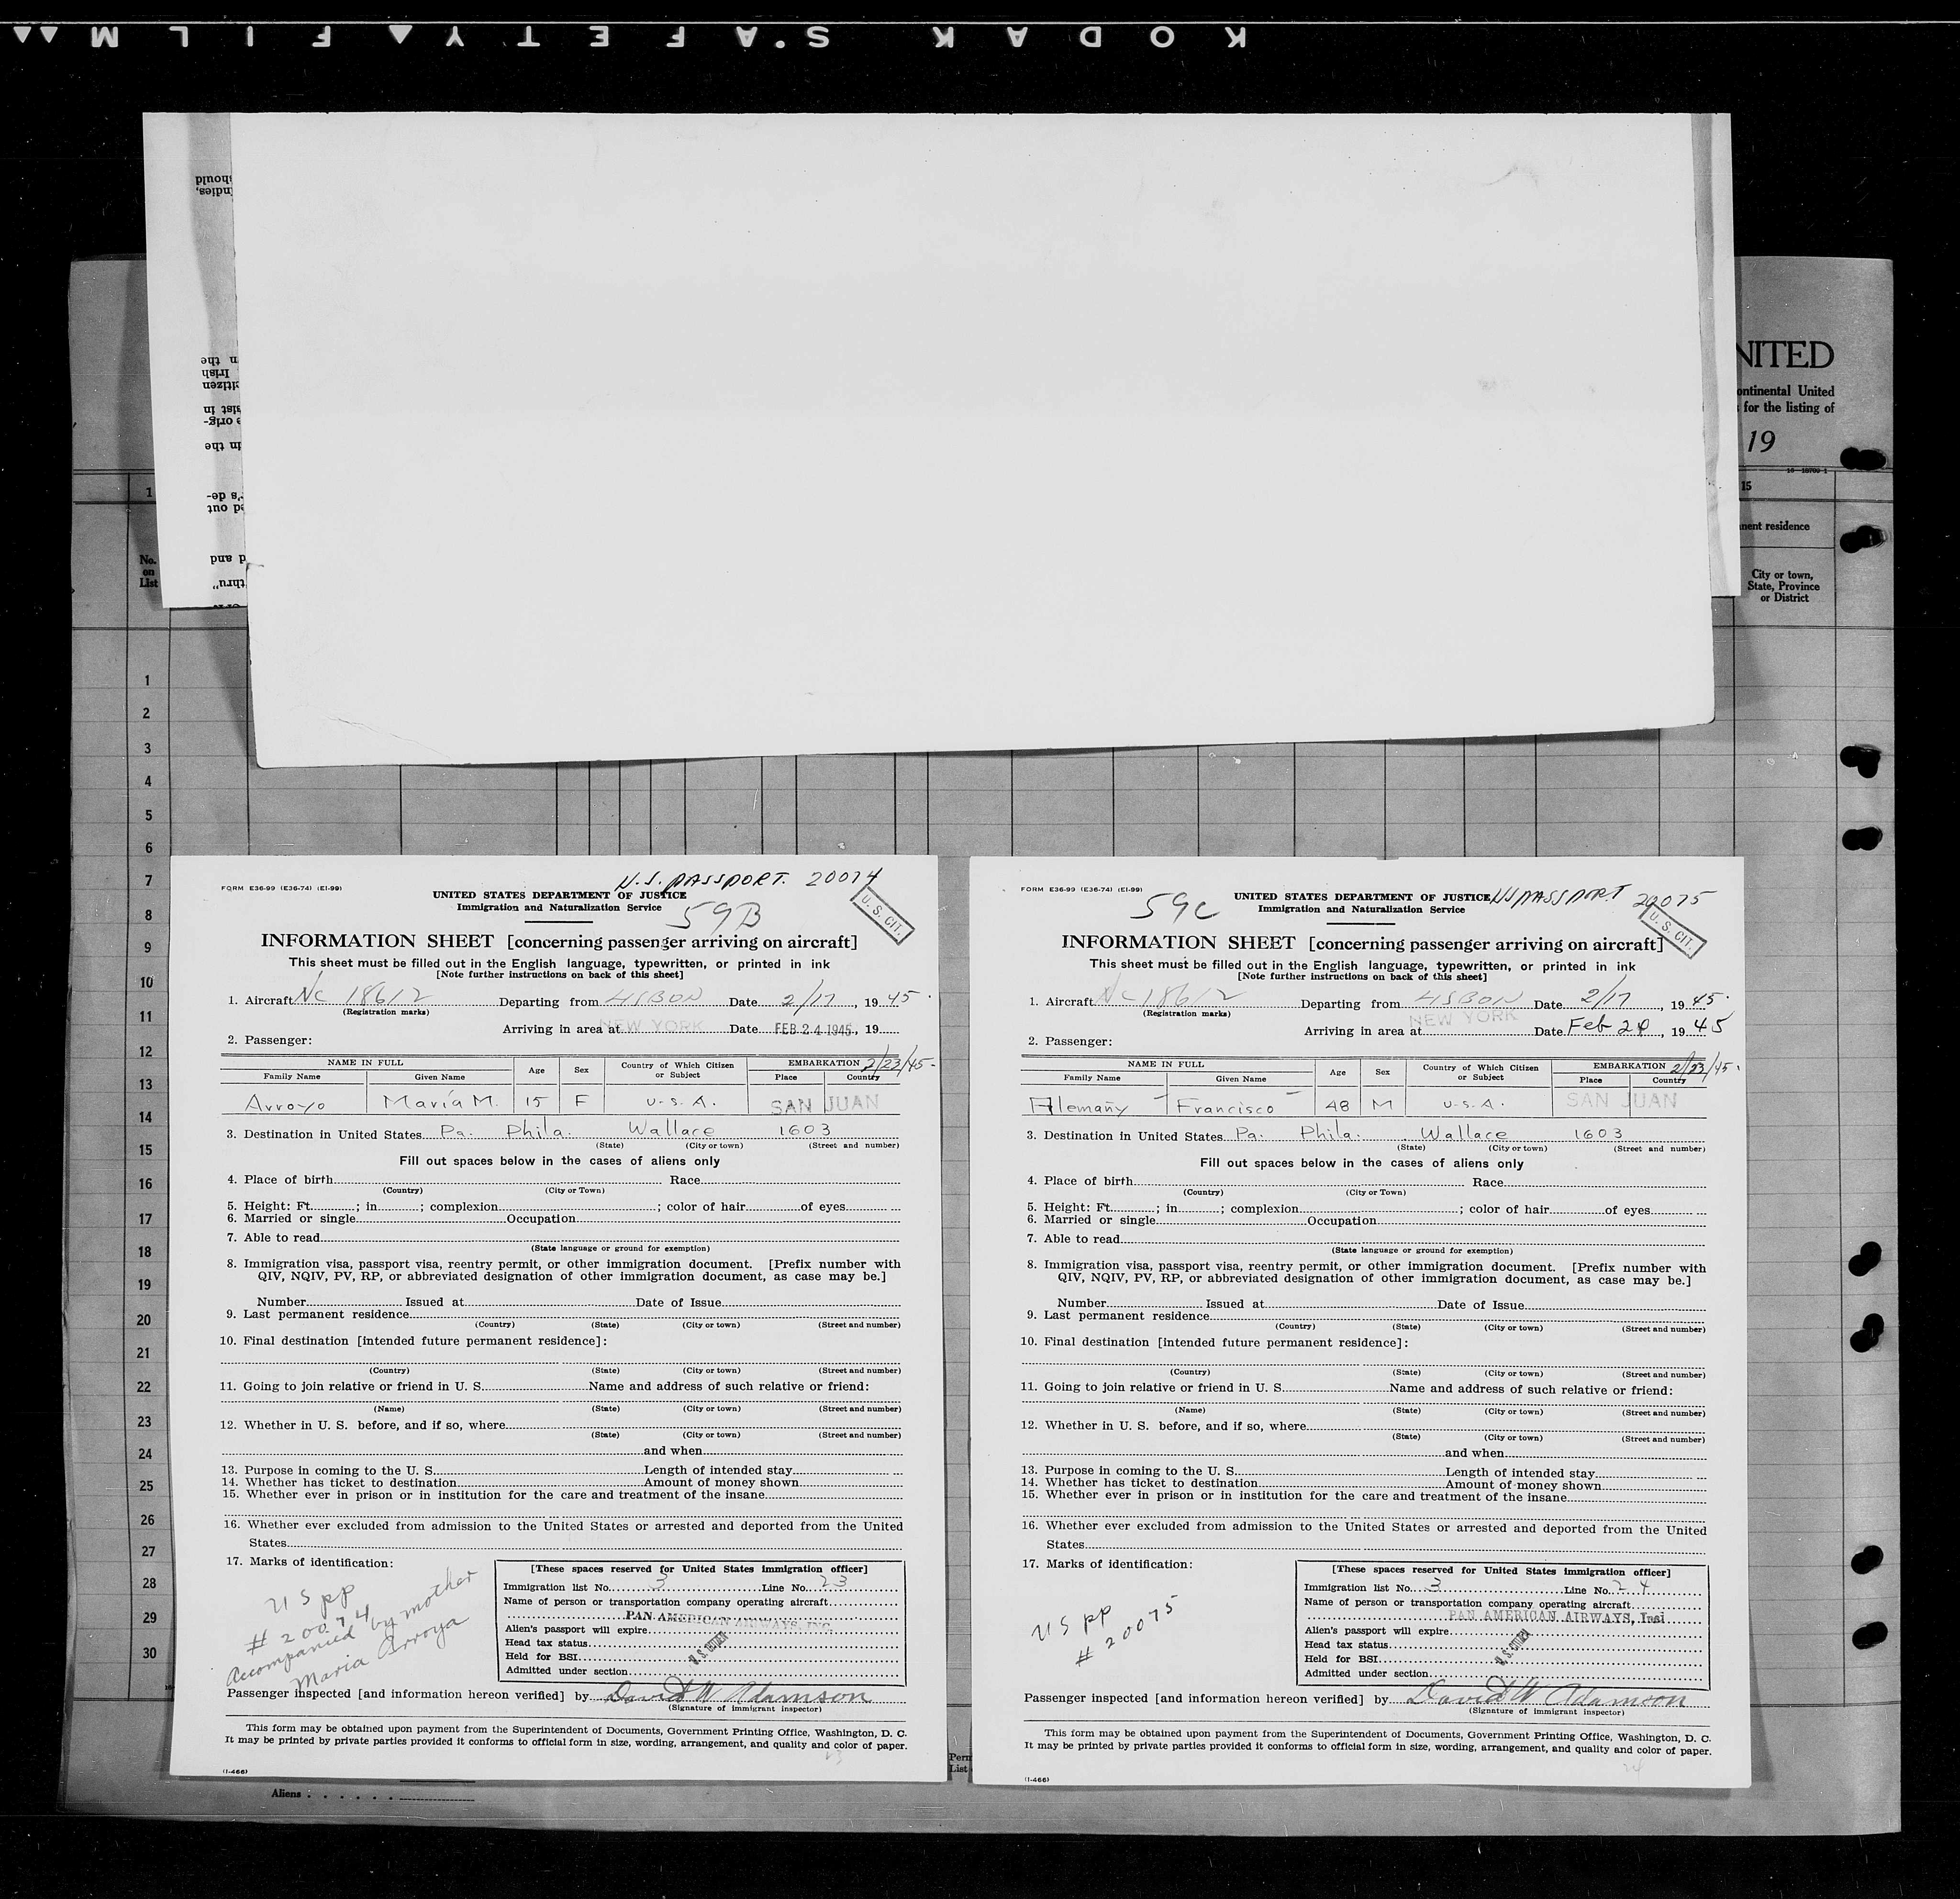 KODAK S'AFETY FILM
should
ndies,
n the
Irish
itizen
sist in
e orig-
in the
's de-
ed out
d and
thru"
NITED
ontinental United
for the listing of
19
16—18709-1
1
15
nent residence
No.
on
List
City or town,
State, Province
or District
1
2
3
4
5
6
7
8
9
10
11
12
13
14
15
16
17
18
19
20
21
22
23
24
25
26
27
28
29
30
FORM E36-99 (E36-74) (EI-99)
U.S. PASSPORT. 20074
UNITED STATES DEPARTMENT OF JUSTICE
Immigration and Naturalization Service
59B
U. S. CIT.
INFORMATION SHEET [concerning passenger arriving on aircraft]
This sheet must be filled out in the English language, typewritten, or printed in ink
[Note further instructions on back of this sheet]
1. Aircraft NC 18612 Departing from LISBON Date 2/17, 19 45.
(Registration marks)
Arriving in area at NEW YORK Date FEB 24 1945, 19
2. Passenger:
NAME IN FULL Age Sex Country of Which Citizen or Subject EMBARKATION 2/23/45-
Family Name Given Name Place Country
Arroyo María M. 15 F U.S.A. SAN JUAN
3. Destination in United States Pa. Phila. Wallace 1603
(State) (City or town) (Street and number)
Fill out spaces below in the cases of aliens only
4. Place of birth Race
(Country) (City or Town)
5. Height: Ft. ; in ; complexion ; color of hair of eyes
6. Married or single Occupation
7. Able to read
(State language or ground for exemption)
8. Immigration visa, passport visa, reentry permit, or other immigration document. [Prefix number with
QIV, NQIV, PV, RP, or abbreviated designation of other immigration document, as case may be.]
Number Issued at Date of Issue
9. Last permanent residence
(Country) (State) (City or town) (Street and number)
10. Final destination [intended future permanent residence]:
(Country) (State) (City or town) (Street and number)
11. Going to join relative or friend in U. S. Name and address of such relative or friend:
(Name) (State) (City or town) (Street and number)
12. Whether in U. S. before, and if so, where
(State) (City or town) (Street and number)
and when
13. Purpose in coming to the U. S. Length of intended stay
14. Whether has ticket to destination Amount of money shown
15. Whether ever in prison or in institution for the care and treatment of the insane
16. Whether ever excluded from admission to the United States or arrested and deported from the United
States
17. Marks of identification:
US pp
# 20074
Accompanied by mother
Maria Arroya
[These spaces reserved for United States immigration officer]
Immigration list No. 3 Line No. 23
Name of person or transportation company operating aircraft
PAN AMERICAN AIRWAYS, INC.
Alien's passport will expire
Head tax status
U.S. CITIZEN
Held for BSI
Admitted under section
Passenger inspected [and information hereon verified] by David W Adamson
(Signature of immigrant inspector)
This form may be obtained upon payment from the Superintendent of Documents, Government Printing Office, Washington, D. C.
It may be printed by private parties provided it conforms to official form in size, wording, arrangement, and quality and color of paper.
23
(I-466)
FORM E36-99 (E36-74) (EI-99)
59C
UNITED STATES DEPARTMENT OF JUSTICE
US PASSPORT 20075
Immigration and Naturalization Service
U. S. CIT.
INFORMATION SHEET [concerning passenger arriving on aircraft]
This sheet must be filled out in the English language, typewritten, or printed in ink
[Note further instructions on back of this sheet]
1. Aircraft NC 18612 Departing from LISBON Date 2/17, 19 45.
(Registration marks)
Arriving in area at NEW YORK Date Feb 24, 19 45
2. Passenger:
NAME IN FULL Age Sex Country of Which Citizen or Subject EMBARKATION 2/23/45.
Family Name Given Name Place Country
Alemañy Francisco 48 M U.S.A. SAN JUAN
3. Destination in United States Pa. Phila. Wallace 1603
(State) (City or town) (Street and number)
Fill out spaces below in the cases of aliens only
4. Place of birth Race
(Country) (City or Town)
5. Height: Ft. ; in ; complexion ; color of hair of eyes
6. Married or single Occupation
7. Able to read
(State language or ground for exemption)
8. Immigration visa, passport visa, reentry permit, or other immigration document. [Prefix number with
QIV, NQIV, PV, RP, or abbreviated designation of other immigration document, as case may be.]
Number Issued at Date of Issue
9. Last permanent residence
(Country) (State) (City or town) (Street and number)
10. Final destination [intended future permanent residence]:
(Country) (State) (City or town) (Street and number)
11. Going to join relative or friend in U. S. Name and address of such relative or friend:
(Name) (State) (City or town) (Street and number)
12. Whether in U. S. before, and if so, where
(State) (City or town) (Street and number)
and when
13. Purpose in coming to the U. S. Length of intended stay
14. Whether has ticket to destination Amount of money shown
15. Whether ever in prison or in institution for the care and treatment of the insane
16. Whether ever excluded from admission to the United States or arrested and deported from the United
States
17. Marks of identification:
US pp
# 20075
[These spaces reserved for United States immigration officer]
Immigration list No. 3 Line No. 24
Name of person or transportation company operating aircraft
PAN AMERICAN AIRWAYS, Inc.
Alien's passport will expire
Head tax status
U.S. CITIZEN
Held for BSI
Admitted under section
Passenger inspected [and information hereon verified] by David W Adamson
(Signature of immigrant inspector)
This form may be obtained upon payment from the Superintendent of Documents, Government Printing Office, Washington, D. C.
It may be printed by private parties provided it conforms to official form in size, wording, arrangement, and quality and color of paper.
24
(I-466)
Perm
List
Aliens